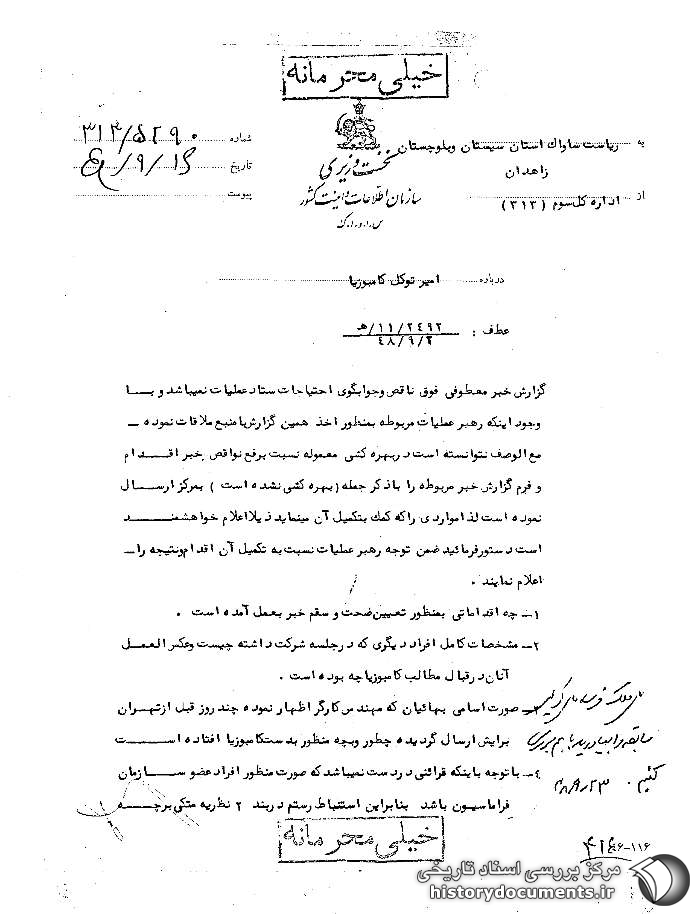 خیلی محرمانه
به ریاست ساواک استان سیستان وبلوچستان
زاهدان
از اداره کل سوم (۳۱۲)
نخست وزیری
سازمان اطلاعات و امنیت کشور
س.ا.و.ا.ک
شماره ۳۱۲/۵۲۹۰
تاریخ
پیوست
درباره امیر توکل کامبوزیا
عطف : ۲٤۹۲/۱۱/هـ
٤۸/۹/۲
گزارش خبر معطوفی فوق ناقص وجوابگوی احتیاجات ستاد عملیات نمیباشد و بـا
وجود اینکه رهبر عملیات مربوطه بمنظور اخذ همین گزارش با منبع ملاقات نموده ـ
مع الوصف نتوانسته است در بهره کشی معموله نسبت برفع نواقص خبر اقـدام
و فرم گزارش خبر مربوطه را با ذکر جمله (بهره کشی نشده است ) بمرکز ارسـال
نموده است لذا مواردی را که کمک بتکمیل آن مینماید ذیلا اعلام خواهشمنـد
است دستور فرمائید ضمن توجه رهبر عملیات نسبت به تکمیل آن اقدام ونتیجه را ـ
اعلام نمایند .
۱ـ چه اقداماتی بمنظور تعیین صحت و سقم خبر بعمل آمده است .
۲ـ مشخصات کامل افراد دیگری که در جلسه شرکت داشته چیست وعکس العمل
آنان در قبال مطالب کامبوزیا چه بوده است .
۳ـ صورت اسامی بهائیان که مهندس کارگر اظهار نموده چند روز قبل از تهران
برایش ارسال گردیده چطور وبچه منظور بدست کامبوزیا افتاده اسـت
٤ـ با توجه باینکه قرائنی در دست نمیباشد که صورت منظور افراد عضو سـازمان
فراماسیون باشد بنابراین استنباط رستم در بند ۲ نظریه متکی برچـه
سابقه را بیاورید با هم بررسی
کنیم .
خیلی محرمانه
۱۱۶-
مرکز بررسی اسناد تاریخی
historydocuments.ir